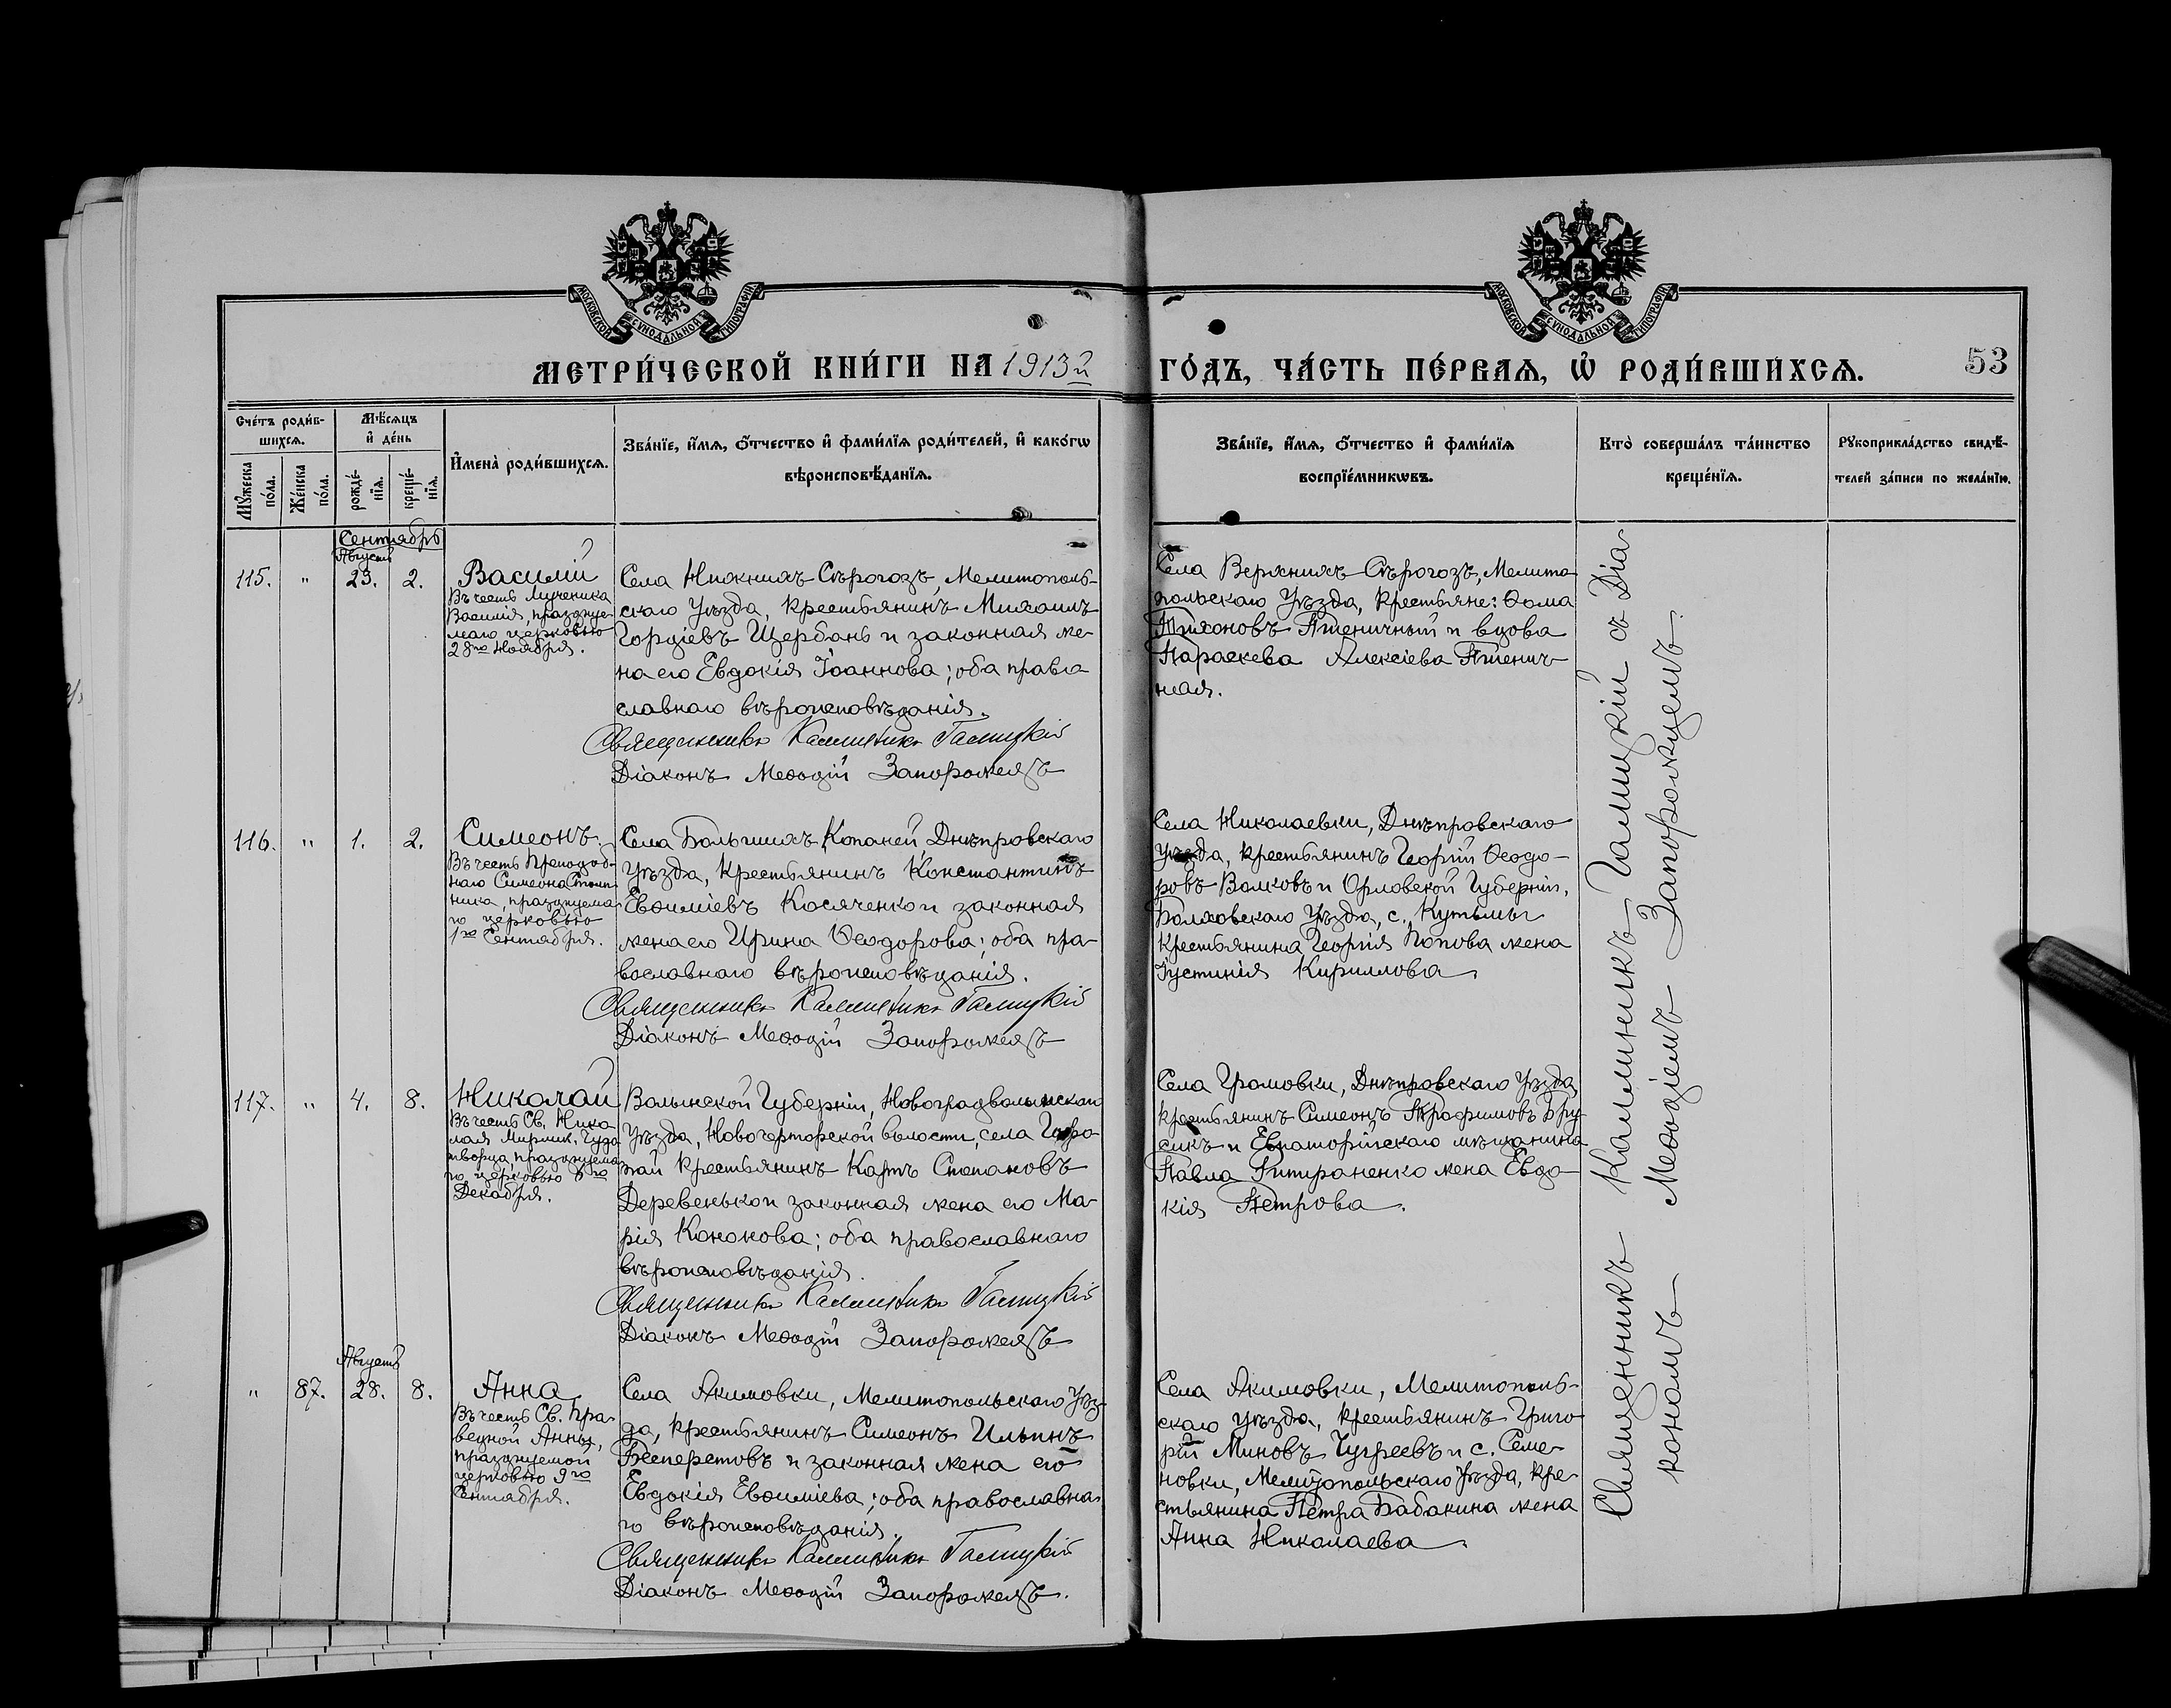 МОСКОВСКОЙ СѴНОДАЛЬНОЙ ТИПОГРАФІИ
МОСКОВСКОЙ СѴНОДАЛЬНОЙ ТИПОГРАФІИ
МЕТРИ́ЧЕСКОЙ КНИ́ГИ НА 1913 г.
ГО́ДЪ, ЧА́СТЬ ПЕ́РВАѦ, Ѡ҆ РОДИ́ВШИХСѦ.
53
Сче́тъ роди́в-
шихсѧ.
Мꙋ́жеска
по́ла.
Же́нска
по́ла.
Мѣ́сѧцъ
и҆ де́нь
рожде́-
нїѧ.
креще́-
нїѧ.
И҆мена̀ роди́вшихсѧ.
Зва́нїе, и҆́мѧ, ѻ҆́тчество и҆ фами́лїѧ роди́телей, и҆ како́гѡ
вѣроисповѣ́данїѧ.
Зва́нїе, и҆́мѧ, ѻ҆́тчество и҆ фами́лїѧ
воспрїе́мникѡвъ.
Кто̀ соверша́лъ та́инство
креще́нїѧ.
Рꙋкоприкла́дство свидѣ́-
телей за́писи по жела́нїю.
Сентябрь
Августъ
115. " 23. 2.
Василій
Въ честь Мученика
Василія, празднуе-
маго церковью
28го Ноября.
Села Нижнихъ Сѣрогозъ, Мелитополь-
скаго Уѣзда, крестьянинъ Михаилъ
Гордіевъ Щербань и законная же-
на его Евдокія Іоаннова; оба право
славнаго вѣроисповѣданія.
Священникъ Каллиникъ Галицкій
Діаконъ Меѳодій Запорожецъ
Села Верхнихъ Сѣрогозъ, Мелито-
польскаго Уѣзда, крестьяне: Ѳома
Тихоновъ Пшеничный и вдова
Параскева Алексіева Пшенич-
ная.
116. " 1. 2.
Симеонъ.
Въ честь Преподоб-
наго Симеона Столп-
ника, празднуема-
го церковью
1го Сентября.
Села Большихъ Копаней, Днѣпровскаго
Уѣзда, крестьянинъ Константинъ
Евѳиміевъ Косяченко и законная
жена его Ирина Ѳеодорова; оба пра-
вославнаго вѣроисповѣданія.
Священникъ Каллиникъ Галицкій
Діаконъ Меѳодій Запорожецъ
Села Николаевки, Днѣпровскаго
Уѣзда, крестьянинъ Георгій Ѳеодо-
ровъ Волковъ и Орловской Губерніи,
Болховскаго Уѣзда, с. Кутьмы
крестьянина Георгія Попова жена
Іустинія Кириллова.
117. " 4. 8.
Николай
Въ честь Св. Нико
лая Мирлик. Чудо
творца, празднуема
го церковью 6го
Декабря.
Волынской Губерніи, Новоградволынскаго
Уѣзда, Новочерторской волости, села
крестьянинъ Карпъ Степановъ
Деревенько и законная жена его Ма-
рія Кононова; оба православнаго
вѣроисповѣданія.
Священникъ Каллиникъ Галицкій
Діаконъ Меѳодій Запорожецъ
Села Громовки, Днѣпровскаго Уѣзда,
крестьянинъ Симеонъ Трофимовъ Бру-
сикъ и Евпаторійскаго мѣщанина
Павла жена Евдо-
кія Петрова.
Августъ
" 87. 28. 8.
Анна
Въ честь Св. Пра-
ведной Анны,
празднуемой
церковью 9го
Сентября.
Села Акимовки, Мелитопольскаго Уѣз-
да, крестьянинъ Симеонъ Ильинъ
и законная жена его
Евдокія Евѳиміева; оба православна-
го вѣроисповѣданія.
Священникъ Каллиникъ Галицкій
Діаконъ Меѳодій Запорожецъ.
Села Акимовки, Мелитополь-
скаго уѣзда, крестьянинъ Григо
рій Миновъ Чугреевъ и с. Семе-
новки, Мелитопольскаго Уѣзда, кре-
стьянина Петра Бабакина жена
Анна Николаева.
Священникъ Каллиникъ Галицкій съ Діа-
кономъ Меѳодіемъ Запорожцемъ.